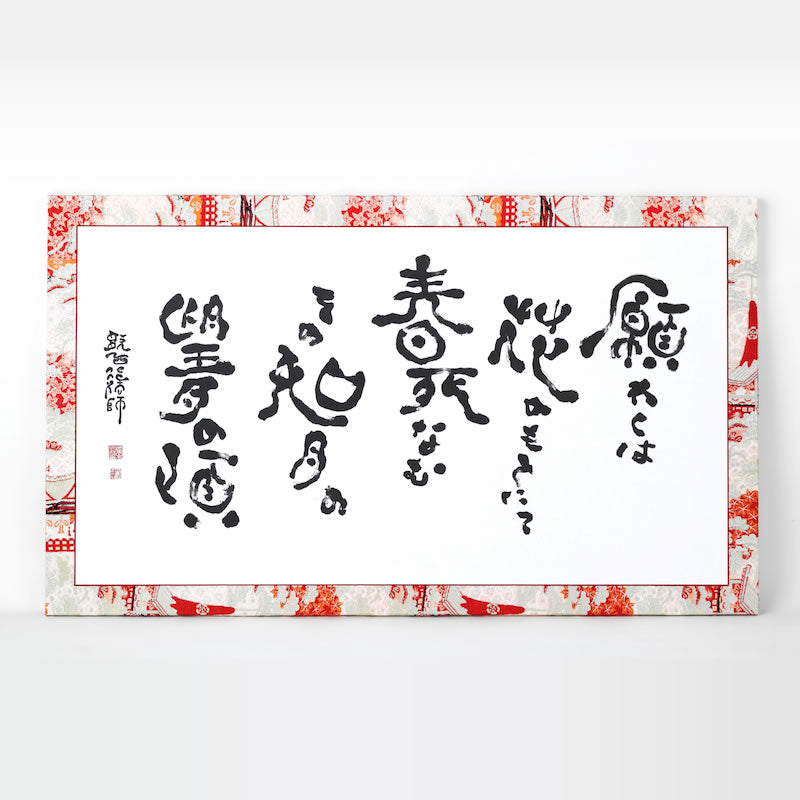 願わくは
花のもとにて
春死なむ
その如月の
望月の頃
西行法師